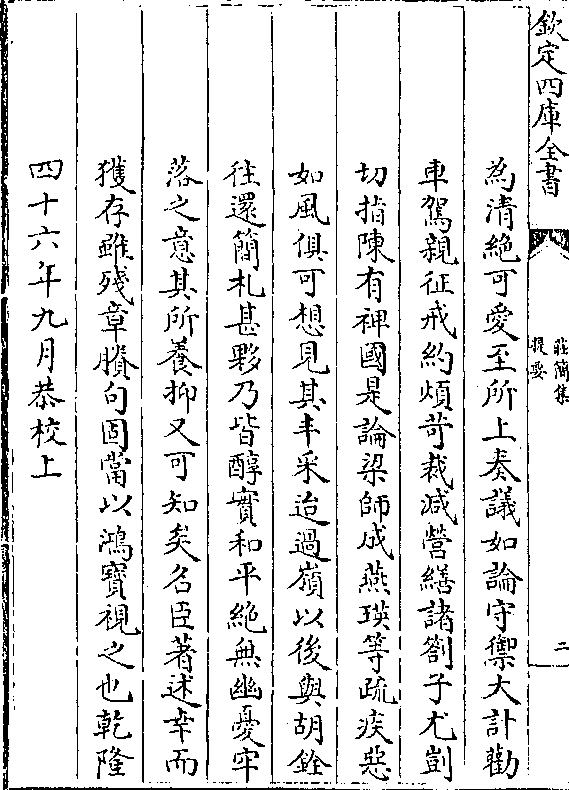 欽定四庫全書
莊簡集
提要
二
為清絶可愛至所上奏議如論守禦大計勸
車駕親征戒約煩苛裁減營繕諸劄子尤剴
切指陳有裨國是論梁師成燕瑛等疏疾惡
如風俱可想見其丰采迨過嶺以後與胡銓
往還簡札甚夥乃皆醇實和平絶無幽憂牢
落之意其所養抑又可知矣名臣著述幸而
獲存雖殘章賸句固當以鴻寶視之也乾隆
四十六年九月恭校上